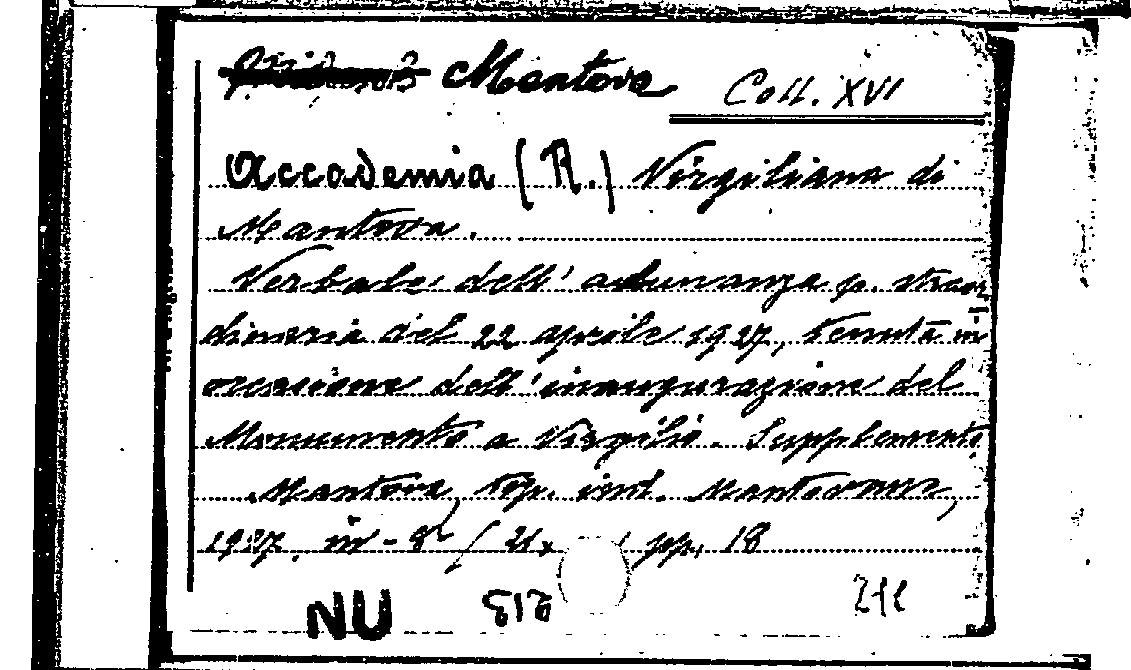 Mantova Coll. XVI
Accademia (R.) Virgiliana di
Mantova.
Verbale dell' adunanza p. straor
dinaria del 22 aprile 1927, tenuta in
occasione dell' inaugurazione del
Monumento a Virgilio. Supplemento
Mantova, tip. ind. Mantovana,
1927. in-8° pp. 18
NU 512